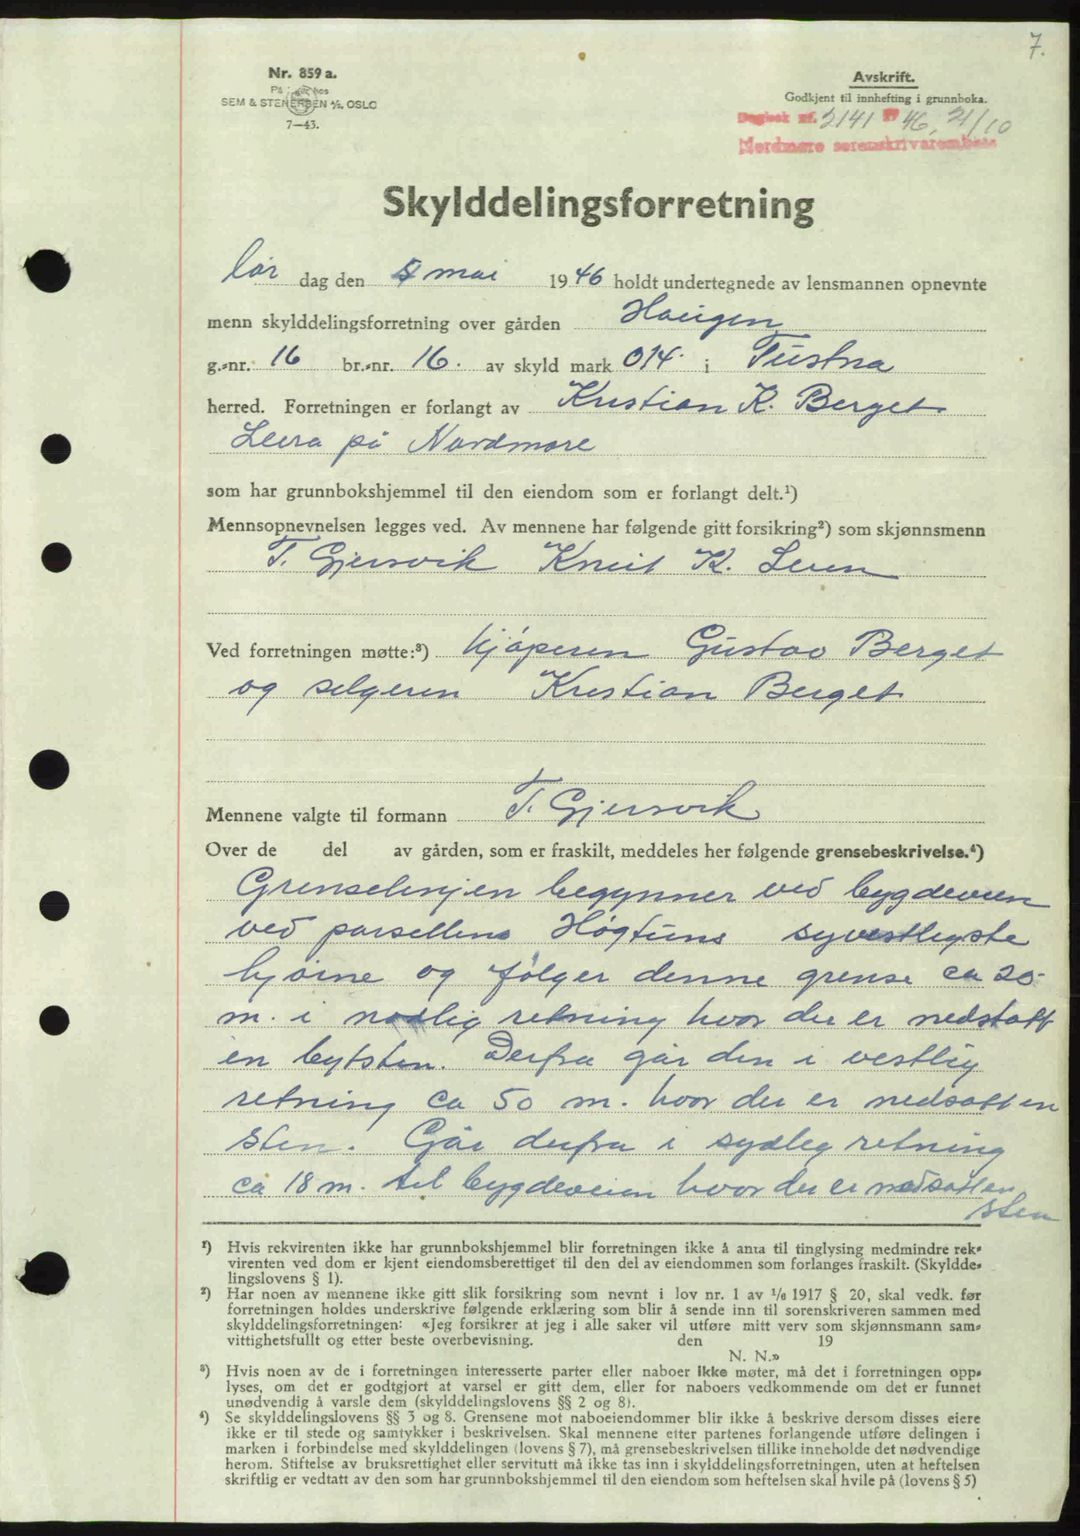 7.
Nr. 859 a.
På hos
SEM & STENERSEN A/S, OSLO
7—43.
Avskrift.
Godkjent til innhefting i grunnboka.
Dagbok nr. 2141 19 46, 21/10
Nordmøre sorenskrivarembete
Skylddelingsforretning
lør dag den 4 mai 1946 holdt undertegnede av lensmannen opnevnte
menn skylddelingsforretning over gården Haugen
g.-nr. 16 br.-nr. 16. av skyld mark 014 i Tustna
herred. Forretningen er forlangt av Kristian K. Berget
Leira på Nordmøre
som har grunnbokshjemmel til den eiendom som er forlangt delt.¹)
Mennsopnevnelsen legges ved. Av mennene har følgende gitt forsikring²) som skjønnsmenn
T. Gjersvik Knut K. Leren
Ved forretningen møtte:³) kjøperen Gustav Berget
og selgeren Kristian Berget
Mennene valgte til formann T. Gjersvik
Over de del av gården, som er fraskilt, meddeles her følgende grensebeskrivelse.⁴)
Grenselinjen begynner ved bygdeveien
ved parsellens Høgtuns syvestligste
hjørne og følger denne grense ca 20
m. i nordlig retning hvor der er nedsatt
en bytsten. Derfra går den i vestlig
retning ca 50 m. hvor der er nedsatt en
sten. Går derfra i sydleg retning
ca 18 m. til bygdeveien hvor der er nedsatt en
sten
¹) Hvis rekvirenten ikke har grunnbokshjemmel blir forretningen ikke å anta til tinglysing medmindre rek-
virenten ved dom er kjent eiendomsberettiget til den del av eiendommen som forlanges fraskilt. (Skyldde-
lingslovens § 1).
²) Har noen av mennene ikke gitt slik forsikring som nevnt i lov nr. 1 av 1/6 1917 § 20, skal vedk. før
forretningen holdes underskrive følgende erklæring som blir å sende inn til sorenskriveren sammen med
skylddelingsforretningen: «Jeg forsikrer at jeg i alle saker vil utføre mitt verv som skjønnsmann sam-
vittighetsfullt og etter beste overbevisning. den 19
N. N.»
³) Hvis noen av de i forretningen interesserte parter eller naboer ikke møter, må det i forretningen opp-
lyses, om det er godtgjort at varsel er gitt dem, eller for naboers vedkommende om det er funnet
unødvendig å varsle dem (skylddelingslovens §§ 2 og 8).
⁴) Se skylddelingslovens §§ 3 og 8. Grensene mot naboeiendommer blir ikke å beskrive dersom disses eiere
ikke er til stede og samtykker i beskrivelsen. Skal mennene etter partenes forlangende utføre delingen i
marken i forbindelse med skylddelingen (lovens § 7), må grensebeskrivelsen tillike inneholde det nødvendige
herom. Stiftelse av bruksrettighet eller servitutt må ikke tas inn i skylddelingsforretningen, uten at heftelsen
skriftlig er vedtatt av den som har grunnbokshjemmel til den eiendom som heftelsen skal hvile på (lovens § 5)